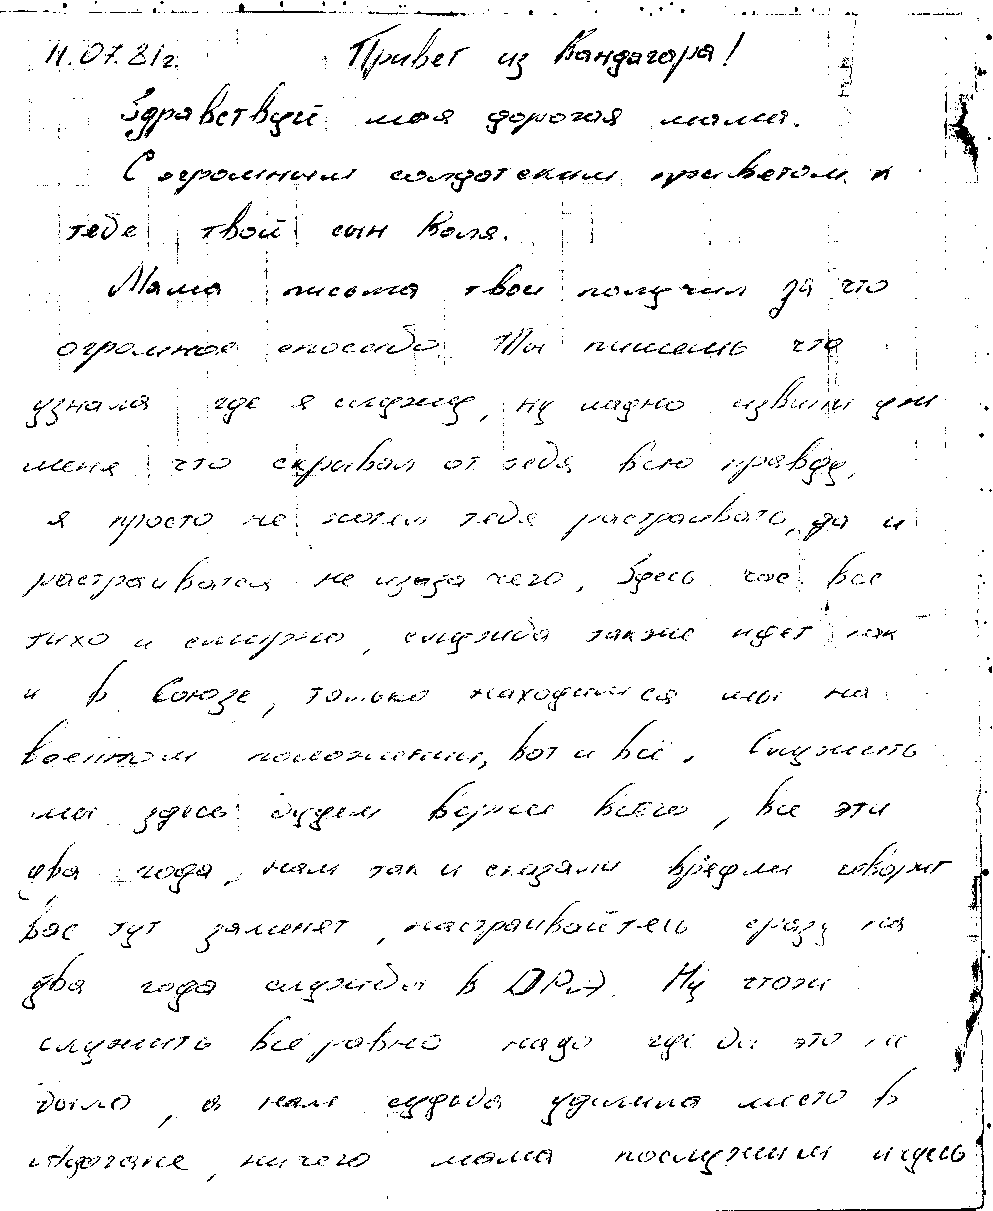 11.07.81г. Привет из Кандагара!
Здравствуй моя дорогая мама.
С огромным солдатским приветом к
тебе твой сын Коля.
Мама письма твои получил за что
огромное спасибо. Ты пишешь что
узнала где я служу, ну ладно извини уж
меня что скрывал от тебя всю правду,
я просто не хотел тебя растраивать, да и
растраиватся не изаза чего, здесь час все
тихо и смирно, служба также идет как
и в Союзе, только находимся мы на
военном положении, вот и всё. Служить
мы здесь будем верние всего, все эти
два года, нам так и сказали врядли говорит
вас тут заменят, настраивайтесь сразу на
два года службы в ДРА. Ну чтож
служить всеравно надо где бы это не
было, а нам судьба уделила место в
Афгане, ничего мама послужим и здесь